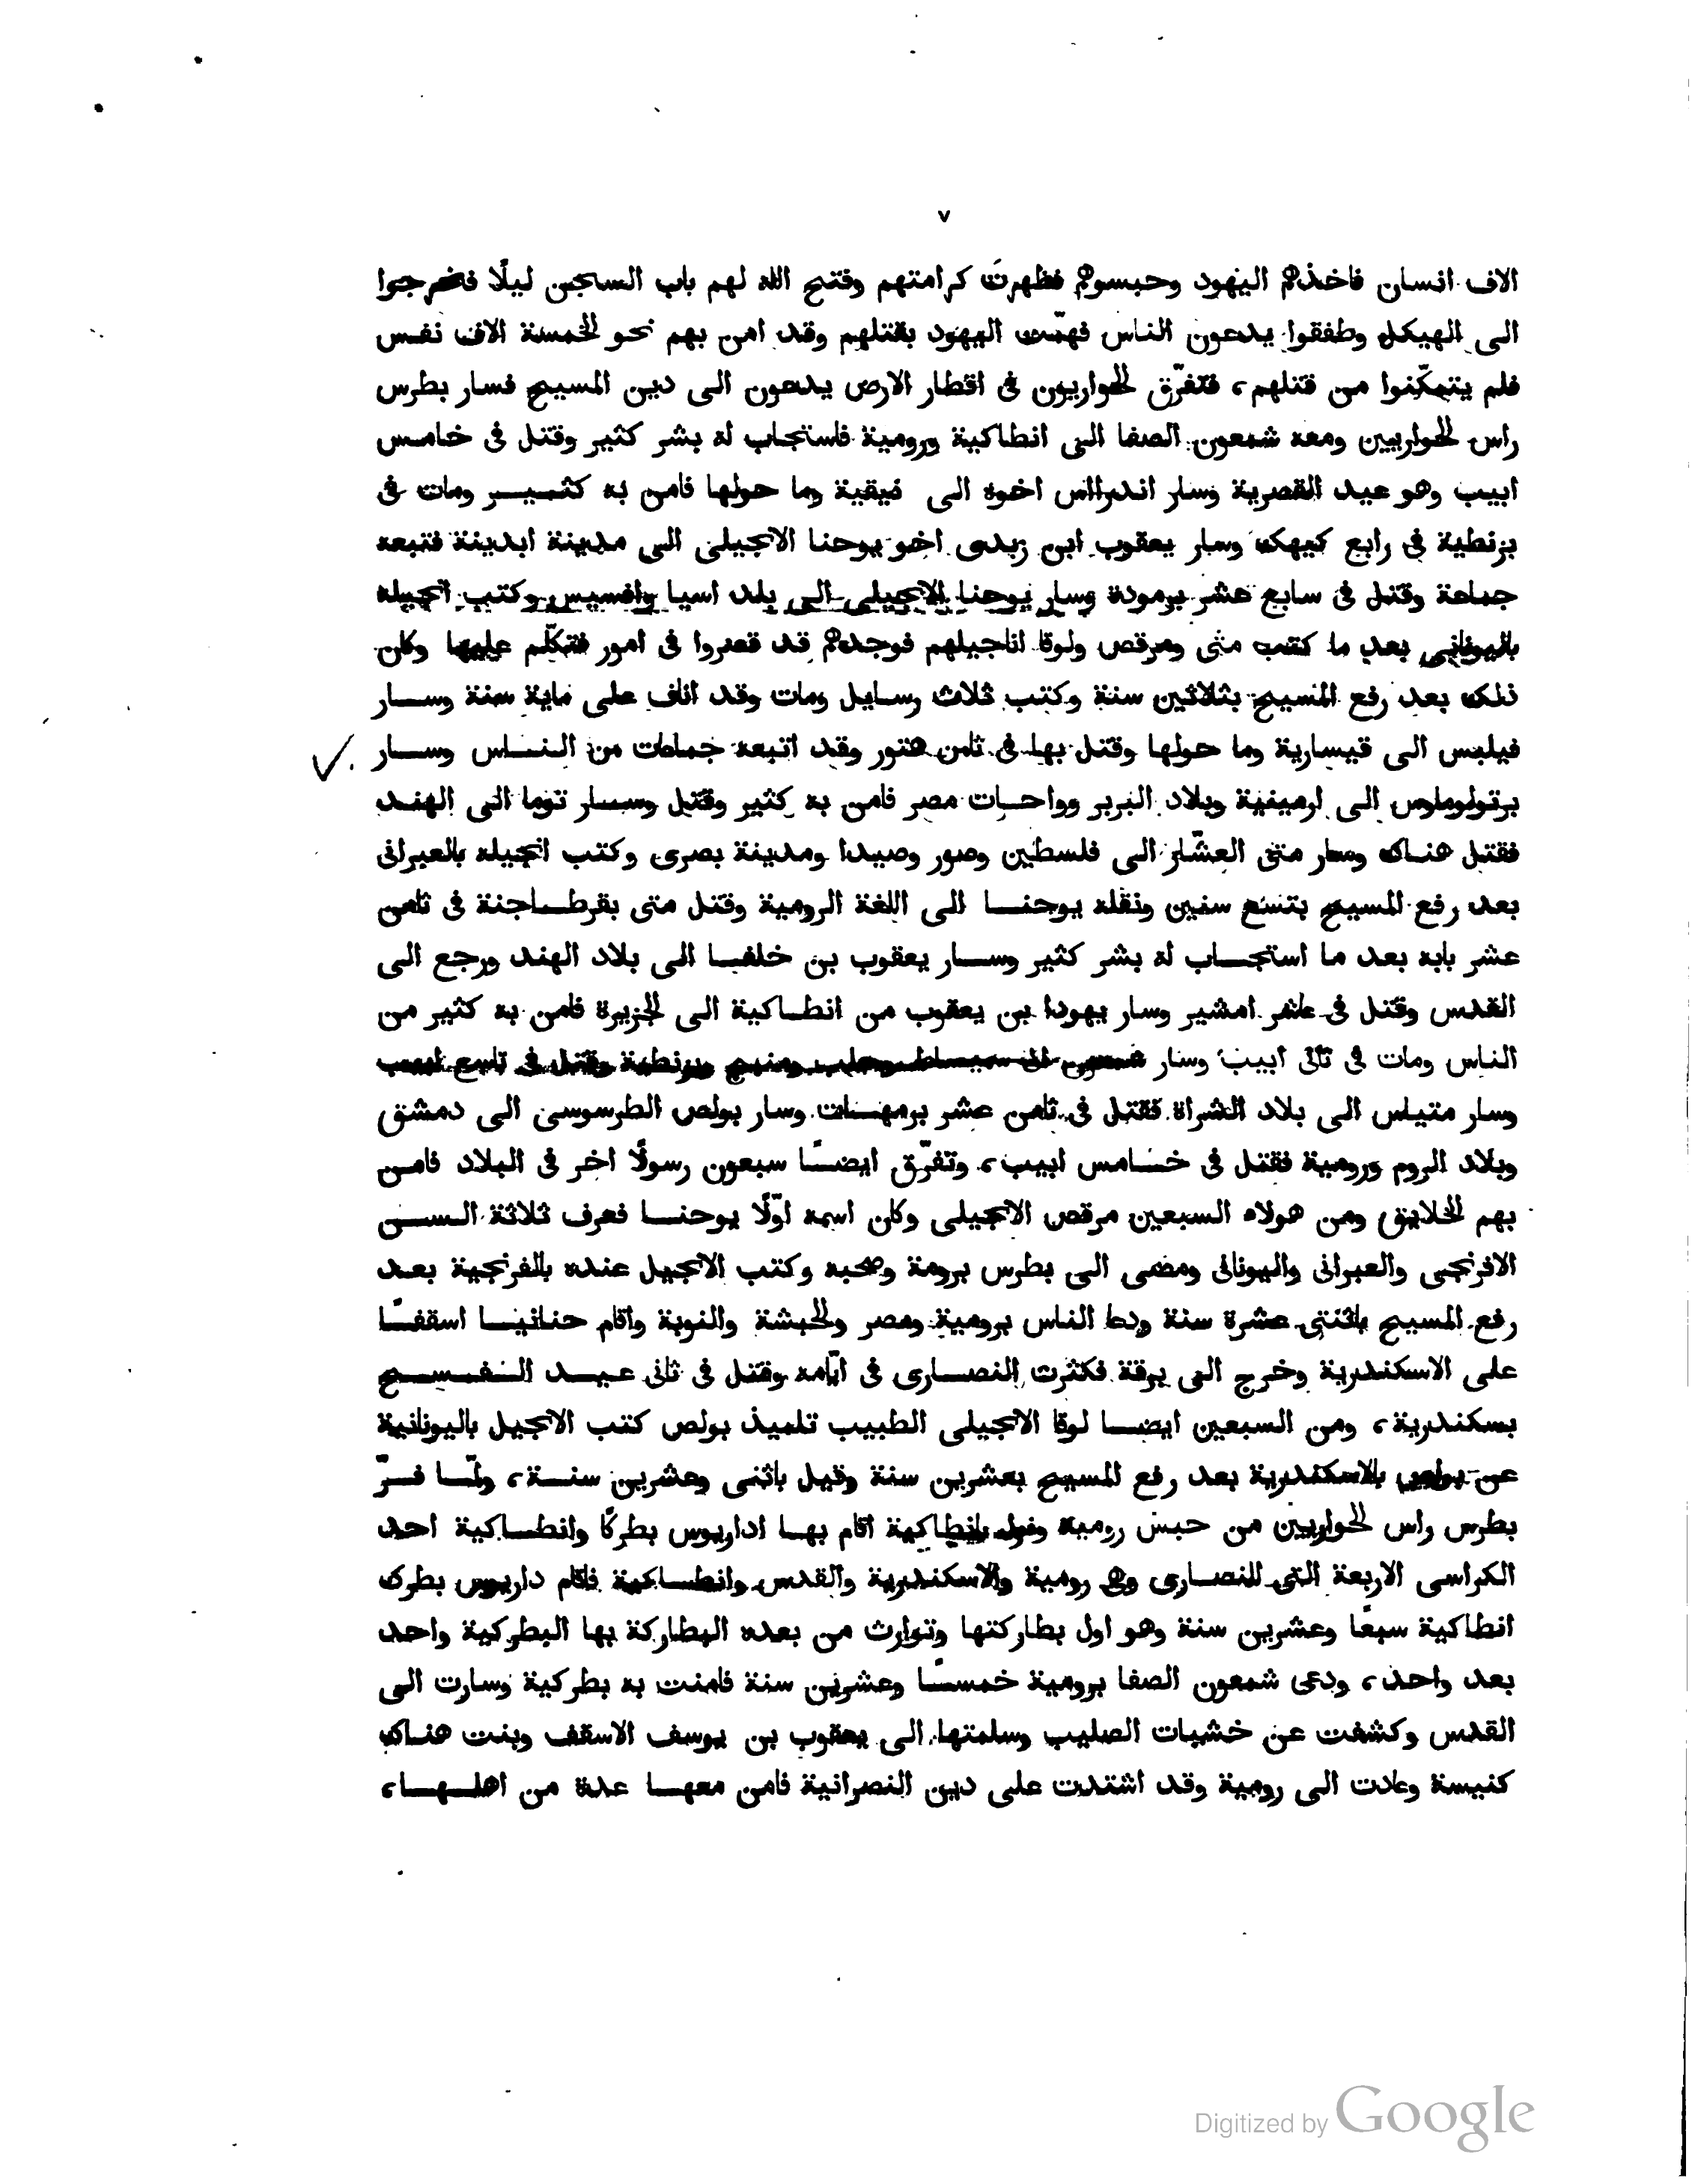 ٧
الاف انسان فاخذهم اليهود وحبسوهم فظهرت كرامتهم وفتح الله لهم باب السجن ليلًا فخرجوا
الى الهيكل وطفقوا يدعون الناس فهمّت اليهود بقتلهم وقد امن بهم نحو الخمسة الاف نفس
فلم يتمكّنوا من قتلهم، فتفرّق الحواريون فى اقطار الارض يدعون الى دين المسيح فسار بطرس
راس الحواريين ومعه شمعون الصفا الى انطاكية ورومية فاستجاب له بشر كثير وقتل فى خامس
ابيب وهو عيد القصرية وسار اندراس اخوه الى نيقية وما حولها فامن به كثير ومات فى
بزنطية فى رابع كيهك وسار يعقوب ابن زبدى اخو يوحنا الانجيلى الى مدينة ابدينة فتبعه
جماعة وقتل فى سابع عشر برمودة وسار يوحنا الانجيلى الى بلد اسيا وافسيس وكتب انجيله
باليونانى بعد ما كتب متى ومرقص ولوقا اناجيلهم فوجدهم قد قصروا فى امور فتكلّم عليها وكان
ذلك بعد رفع المسيح بثلاثين سنة وكتب ثلاث رسايل ومات وقد اناف على ماية سنة وسار
فيلبس الى قيسارية وما حولها وقتل بها فى ثامن هتور وقد اتبعه جماعات من الناس وسار
برتولوماوس الى ارمينية وبلاد البربر وواحات مصر فامن به كثير وقتل وسار توما الى الهند
فقتل هناك وسار متى العشّار الى فلسطين وصور وصيدا ومدينة بصرى وكتب انجيله بالعبرانى
بعد رفع المسيح بتسع سنين ونقله يوحنا الى اللغة الرومية وقتل متى بقرطاجنة فى ثامن
عشر بابه بعد ما استجاب له بشر كثير وسار يعقوب بن خلفيا الى بلاد الهند ورجع الى
القدس وقتل فى عاشر امشير وسار يهودا بن يعقوب من انطاكية الى الجزيرة فامن به كثير من
الناس ومات فى ثانى ابيب وسار شمعون الى سميساط وحلب ومنبج وبزنطية وقتل فى تاسع ابيب
وسار متياس الى بلاد الشراة فقتل فى ثامن عشر برمهات وسار بولص الطرسوسى الى دمشق
وبلاد الروم ورومية فقتل فى خامس ابيب، وتفرّق ايضًا سبعون رسولًا اخر فى البلاد فامن
بهم الخلايق ومن هولاء السبعين مرقص الانجيلى وكان اسمه اوّلًا يوحنا فعرف ثلاثة السن
الافرنجى والعبرانى واليونانى ومضى الى بطرس برومة وصحبه وكتب الانجيل عنده بالفرنجية بعد
رفع المسيح باثنتى عشرة سنة ودعا الناس برومية ومصر والحبشة والنوبة واقام حنانيا اسقفًا
على الاسكندرية وخرج الى برقة فكثرت النصارى فى ايّامه وقتل فى ثانى عيد الفسح
بسكندرية، ومن السبعين ايضا لوقا الانجيلى الطبيب تلميذ بولص كتب الانجيل باليونانية
عن بولص بالاسكندرية بعد رفع المسيح بعشرين سنة وقيل باثنى وعشرين سنة، ولمّا فرّ
بطرس راس الحواريين من حبس رومية ونزل بانطاكية اقام بها اداريوس بطركًا وانطاكية احد
الكراسى الاربعة التى للنصارى وهى رومية والاسكندرية والقدس وانطاكية فاقام داريوس بطرك
انطاكية سبعًا وعشرين سنة وهو اول بطاركتها وتوارث من بعده البطاركة بها البطركية واحد
بعد واحد، ودعى شمعون الصفا برومية خمسًا وعشرين سنة فامنت به بطركية وسارت الى
القدس وكشفت عن خشبات الصليب وسلمتها الى يعقوب بن يوسف الاسقف وبنت هناك
كنيسة وعادت الى رومية وقد اشتدت على دين النصرانية فامن معها عدة من اهلها،
Digitized by Google